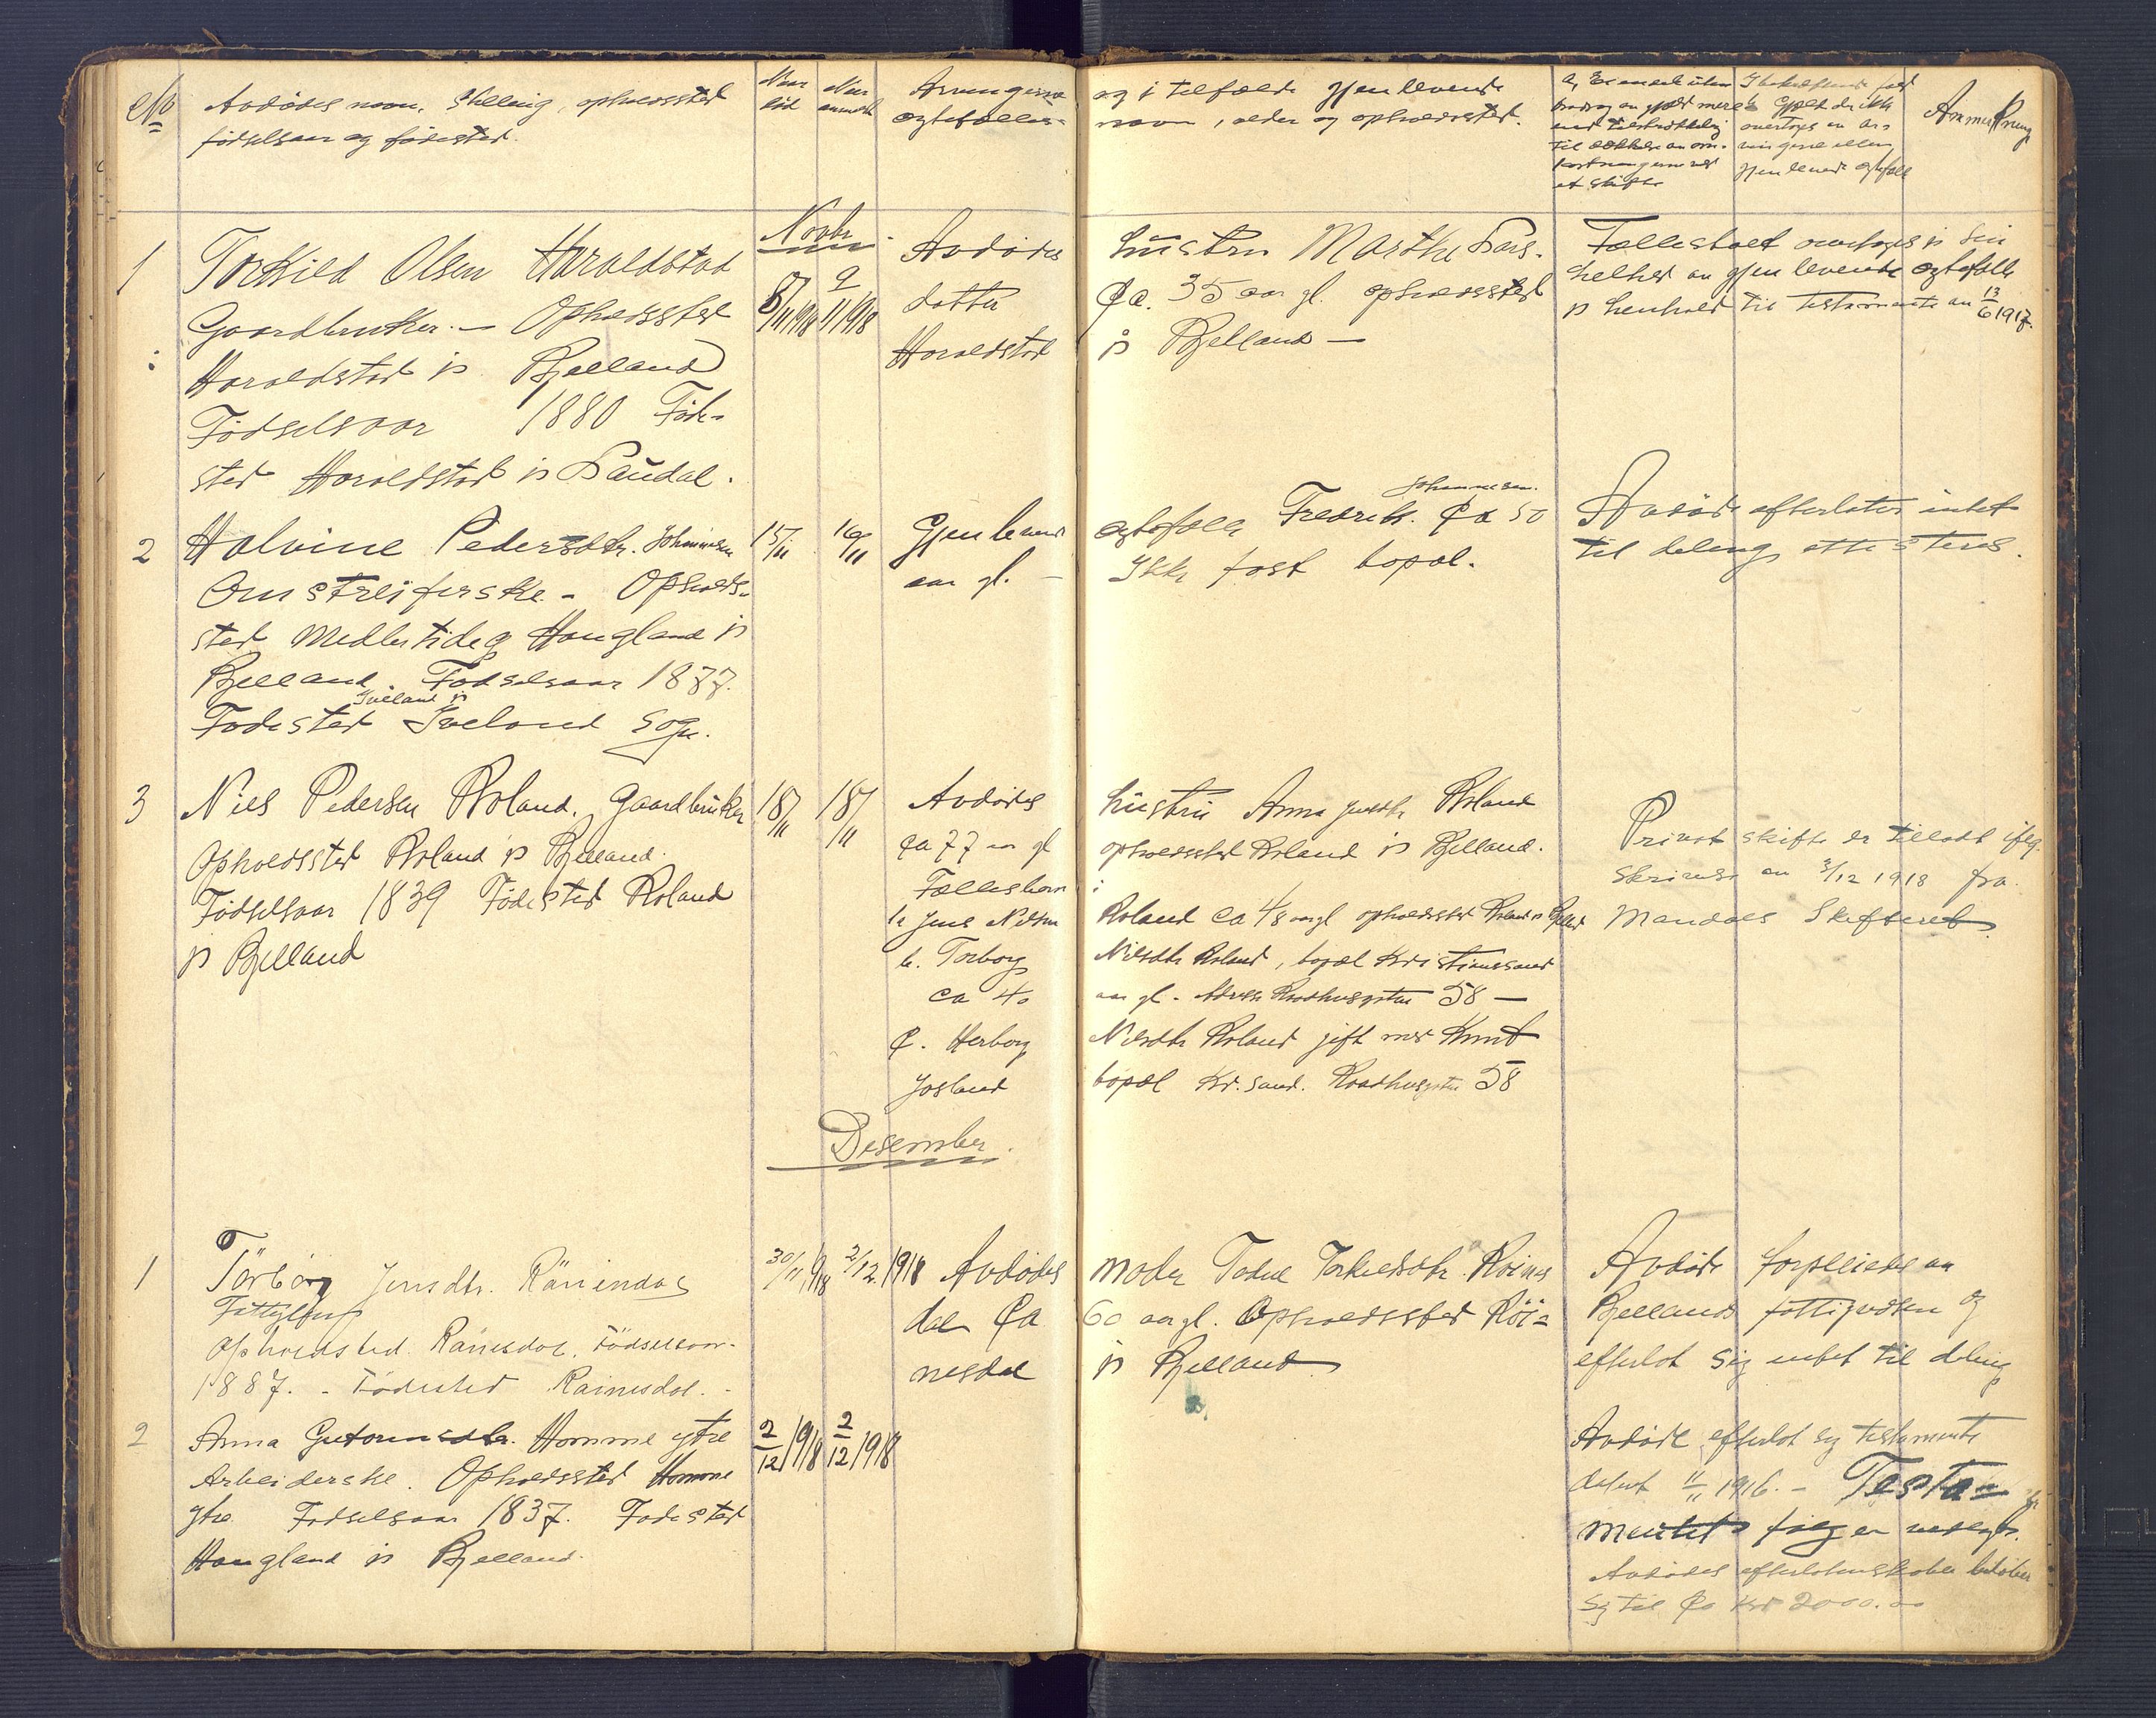 No
Avdødes navn, stilling, opholdssted
fødselsaar og fødested.
Naar
død
Naar
anmeldt
Arvingerne
ægtefælles
og i tilfælde gjenlevende
navn, alder og opholdssted.
til dækkelse av om-
kostningerne ved
et skifte
gjenlevende ægtefæll
Anmerkning
Novbr
1
Torkild Olsen Haraldstad
Gaardbruker. — Opholdssted
Haraldstad i Bjelland
Fødselsaar 1880 Føde-
sted Haraldstad i Laudal.
8/11 1918
9/11 1918
Avdødes
datter
Haraldstad
hustru Marthe Lars-
Ca. 35 aar gl. opholdssted
i Bjelland —
Fællesboet overtages i sin
helhet av gjenlevende ægtefælle
i henhold til testamente av 13/6 1917.
2
Halvine Pedersdtr. Johannesen
Omstreiferske - Opholds-
sted Midlertidig Haugland i
Bjelland. Fødselsaar 1877.
Iveland i
Fødested Iveland Sogn.
15/11
16/11
Gjenlevend
aar gl. —
Johannesen.
ægtefælle Fredrik. Ca 50
Ikke fast bopæl.
Avdøde efterlater intet
til deling attesteres.
3
Nils Pedersen Roland. Gaardbruker
Opholdssted Roland i Bjelland.
Fødselsaar 1839 Fødested Roland
i Bjelland
18/11
18/11
Avdødes
ca 77 aar gl
Fællesbarn
a Jens Nilsen
b. Torborg
ca 40
c. Herborg
Josland
hustru Anna Roland
opholdssted Roland i Bjelland.
Roland ca 48 aar gl opholdssted Roland i Bjelland
Nilsdtr Roland, bopæl Kristianssand
aar gl. Adresse Raadhusgaten 58 —
Nilsdtr Roland gift med Knut
bopæl Kr.sand. Raadhusgatn 58
Privat skifte er tilladt iflg.
Skrivelse av 3/12 1918 fra
Mandals Skifteret.
Desember.
1
Torborg Jensdtr. Röinesdal
Opholdssted. Röinesdal. Fødselsaar
1887. - Fødested Röinesdal. -
30/11 1918
2/12 1918
Avdødes
dal Ca
nesdal
moder Todne Torkelsdtr. Röines
60 aar gl. Opholdssted Röi-
i Bjelland
Avdøde forpleiedes av
Bjellands fattigvæsen og
efterlot sig intet til deling
2
Anna Gutormsdtr. Homme ytre
Arbeiderske. Opholdssted Homme
ytre Fødselsaar 1837. Fødested
Haugland i Bjelland.
2/12 1918
2/12 1918
Avdøde efterlot sig testamente
datert 11/11 1916. — Testa-
mentet følger vedlagt.
Avdødes efterladenskaber beløber
sig til Ca Kr 2000.00